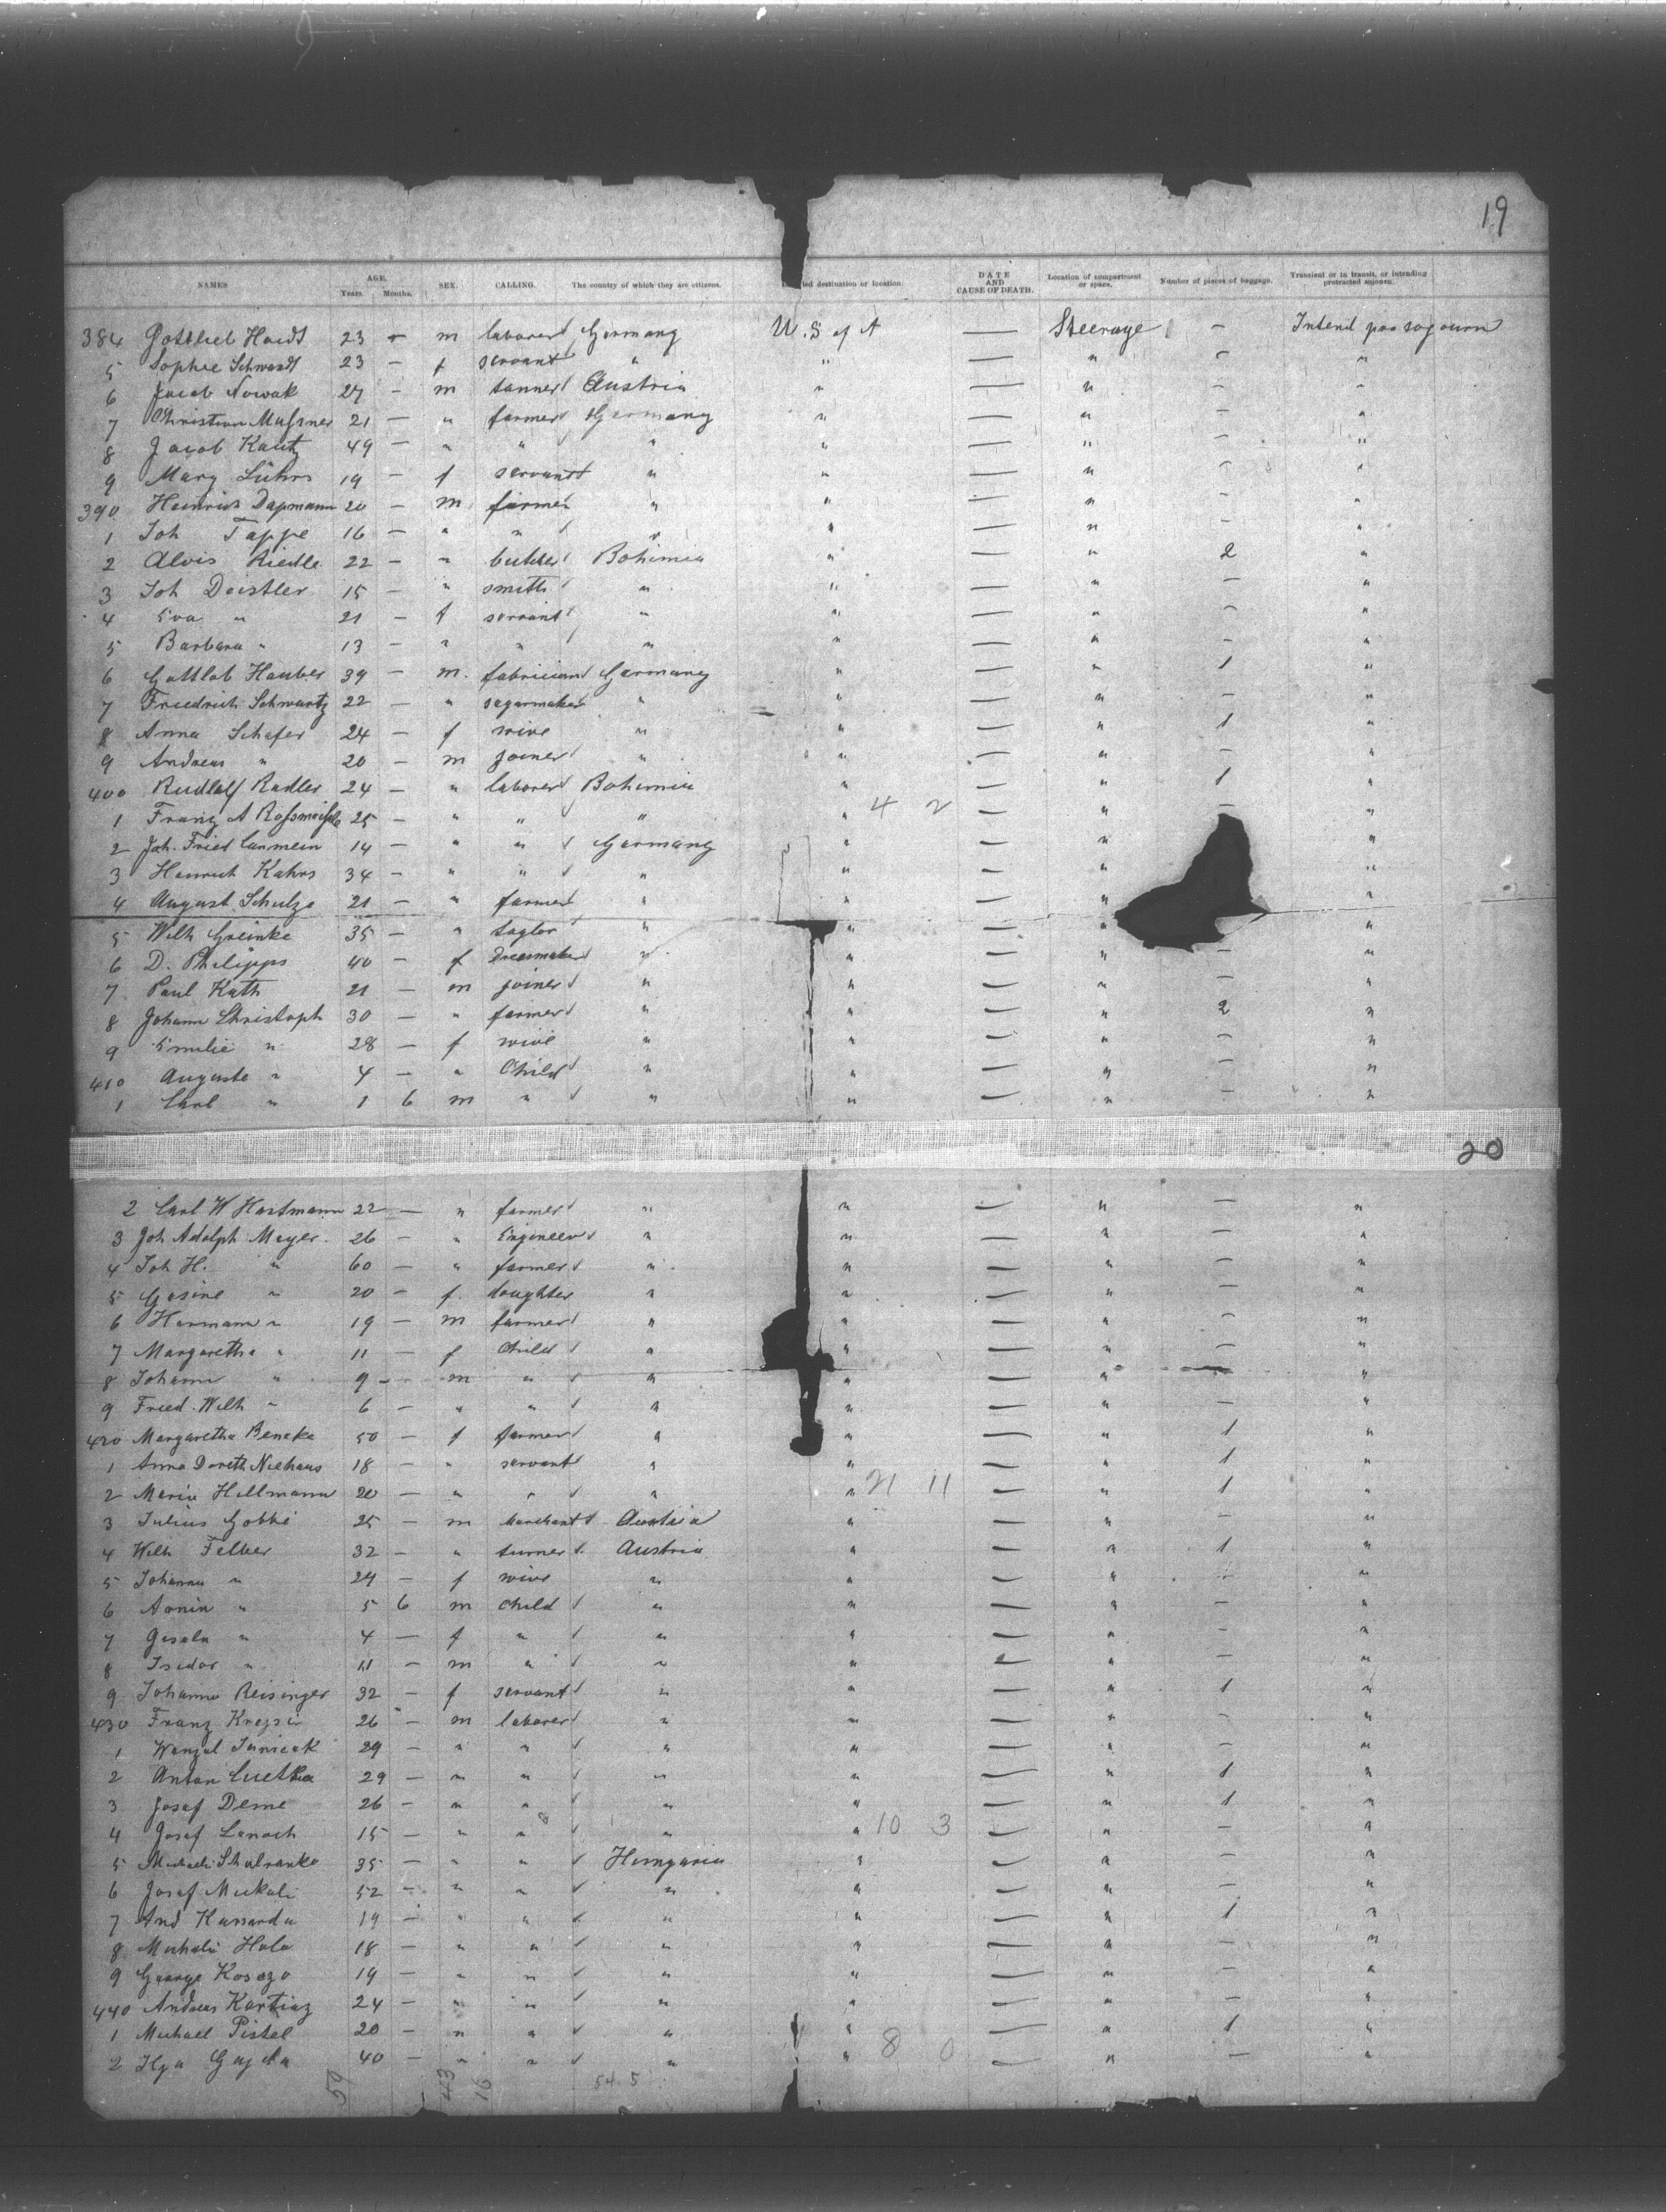 19
NAMES AGE. Years. Months. SEX. CALLING. The country of which they are citizens. ed destination or location DATE AND CAUSE OF DEATH. Location of compartment or space. Number of pieces of baggage. Transient or in transit, or intending protracted sojourn.
384 Gottlieb 23 - m laborer Germany U.S of A — Steerage - Intend pro sojourn
5 Sophie 23 - f servant " " — " - "
6 Jacob Nowak 27 - m tanner Austria " — " - "
7 Christian 21 - " farmer Germany " — " - "
8 Jacob Kautz 49 - " " " " — " - "
9 Mary Lührs 19 - f servant " " — " - "
390 Heinrich Dapmann 20 - m farmer " " — " - "
1 Joh Tappe 16 - " " " " — " - "
2 Alois Riedle 22 - " butcher Bohimia " — " 2 "
3 Joh Deistler 15 - " smith " " — " - "
4 Eva " 21 - f servant " " — " - "
5 Barbara " 13 - " " " " — " - "
6 Gottlob Hauber 39 - m. fabrician Germany " — " 1 "
7 Friedrich Schwartz 22 - " segarmaker " " — " - "
8 Anna Schafer 24 - f wive " " — " 1 "
9 Andreas " 20 - m joiner " " — " - "
400 Rudlolf Radler 24 - " laborer Bohimia " — " 1 "
1 Franz A 25 - " " " " 4 2 — " - "
2 Joh. Fried 14 - " " Germany " — " "
3 Heinrich Kahrs 34 - " " " " — " "
4 August Schulze 21 - " farmer " " — " "
5 Wilh Greinke 35 - " taylor " " — " "
6 D. Philipps 40 - f Dressmaker " " — " - "
7 Paul Kath 21 - m joiner " " — " - "
8 Johann Christoph 30 - " farmer " " — " 2 "
9 Emilie " 28 - f wive " " — " - "
410 Auguste " 4 - " Child " " — " - "
1 Carl " 1 6 m " " " — " - "
20
2 Carl W Hartmann 22 - " farmer " " — " - "
3 Joh Adolph Meyer. 26 - " Engineer " " — " - "
4 Joh H. " 60 - " farmer " " — " - "
5 Gesine " 20 - f. doughter " " — " - "
6 Hermann " 19 - m farmer " " — " - "
7 Margaretha " 11 - f Child " " — " - "
8 Johann " 9 - m " " " — " - "
9 Fried. Wilh " 6 - " " " " — " - "
420 Margaretha Beneke 50 - f farmer " " — " 1 "
1 Anna Doreth Niehaus 18 - " servant " " — " 1 "
2 Maria Hillmann 20 - " " " " 21 11 — " 1 "
3 Julius 25 - m Merchant Austria " — " - "
4 Wilh Felber 32 - " turner Austria " — " 1 "
5 Johanna " 24 - f wive " " — " - "
6 " 5 6 m Child " " — " - "
7 Gisela " 4 - f " " " — " - "
8 Isidor " 11 - m " " " — " - "
9 Johanna Reisinger 32 - f servant " " — " 1 "
430 Franz 26 - m laborer " " — " - "
1 Wenzel 29 - " " " " — " - "
2 Anton 29 - " " " " — " 1 "
3 Josef Deme 26 - " " " " — " 1 "
4 Josef 15 - " " " " 10 3 — " - "
5 35 - " " Hungaria " — " - "
6 Josef 52 - " " " " — " - "
7 And 19 - " " " " — " 1 "
8 18 - " " " " — " - "
9 George 19 - " " " " — " - "
440 Andreas 24 - " " " " — " - "
1 Michael Pistel 20 - " " " " — " 1 "
2 40 - " " " " 8 0 — " - "
59 43 16 54 5